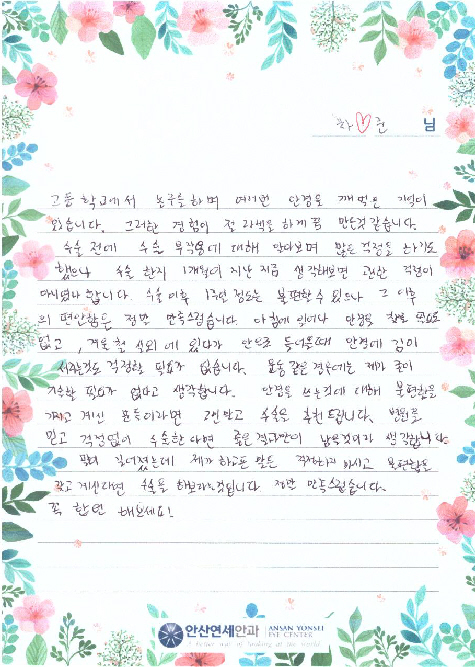 하♡준 님
고등학교에서 농구를 하며 여러번 안경을 깨먹은 기억이
있습니다. 그러한 경험이 절 라섹을 하게끔 만든것 같습니다.
수술 전에 수술 부작용에 대해 알아보며 많은 걱정을 하기도
했으나 수술 한지 1개월이 지난 지금 생각해보면 괜한 걱정이
아니었나 합니다. 수술 이후 1주일 정도는 불편할 수 있으나 그 이후
의 편안함은 정말 만족스럽습니다. 아침에 일어나 안경을 찾을 필요도
없고, 겨울철 실외에 있다가 안으로 들어올때 안경에 김이
서리는것도 걱정할 필요가 없습니다. 운동 같은 경우에는 제가 굳이
기술할 필요가 없다고 생각합니다. 안경을 쓰는것에 대해 불편함을
가지고 계신 분들이라면 고민말고 수술을 추천드립니다. 병원을
믿고 걱정없이 수술한다면 좋은 결과만이 남을것이라 생각합니다
말이 길어졌는데 제가 하고픈 말은 걱정하지 마시고 불편함을
갖고 계신다면 수술을 해보라는것입니다 정말 만족스럽습니다.
꼭 한번 해보세요!
안산연세안과 ANSAN YONSEI EYE CENTER
A better way of looking at the world